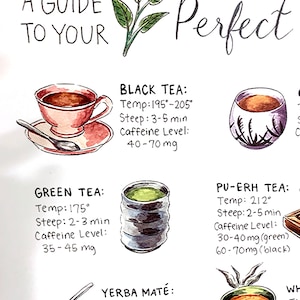 A GUIDE
TO YOUR
Perfect
BLACK TEA:
Temp: 195°-205°
Steep: 3-5 min
Caffeine Level:
40-70 mg
GREEN TEA:
Temp: 175°
Steep: 2-3 min
Caffeine Level:
35-45 mg
PU-ERH TEA:
Temp: 212°
Steep: 2-5 min
Caffeine Level:
30-40 mg (green)
60-70 mg (black)
YERBA MATÉ: